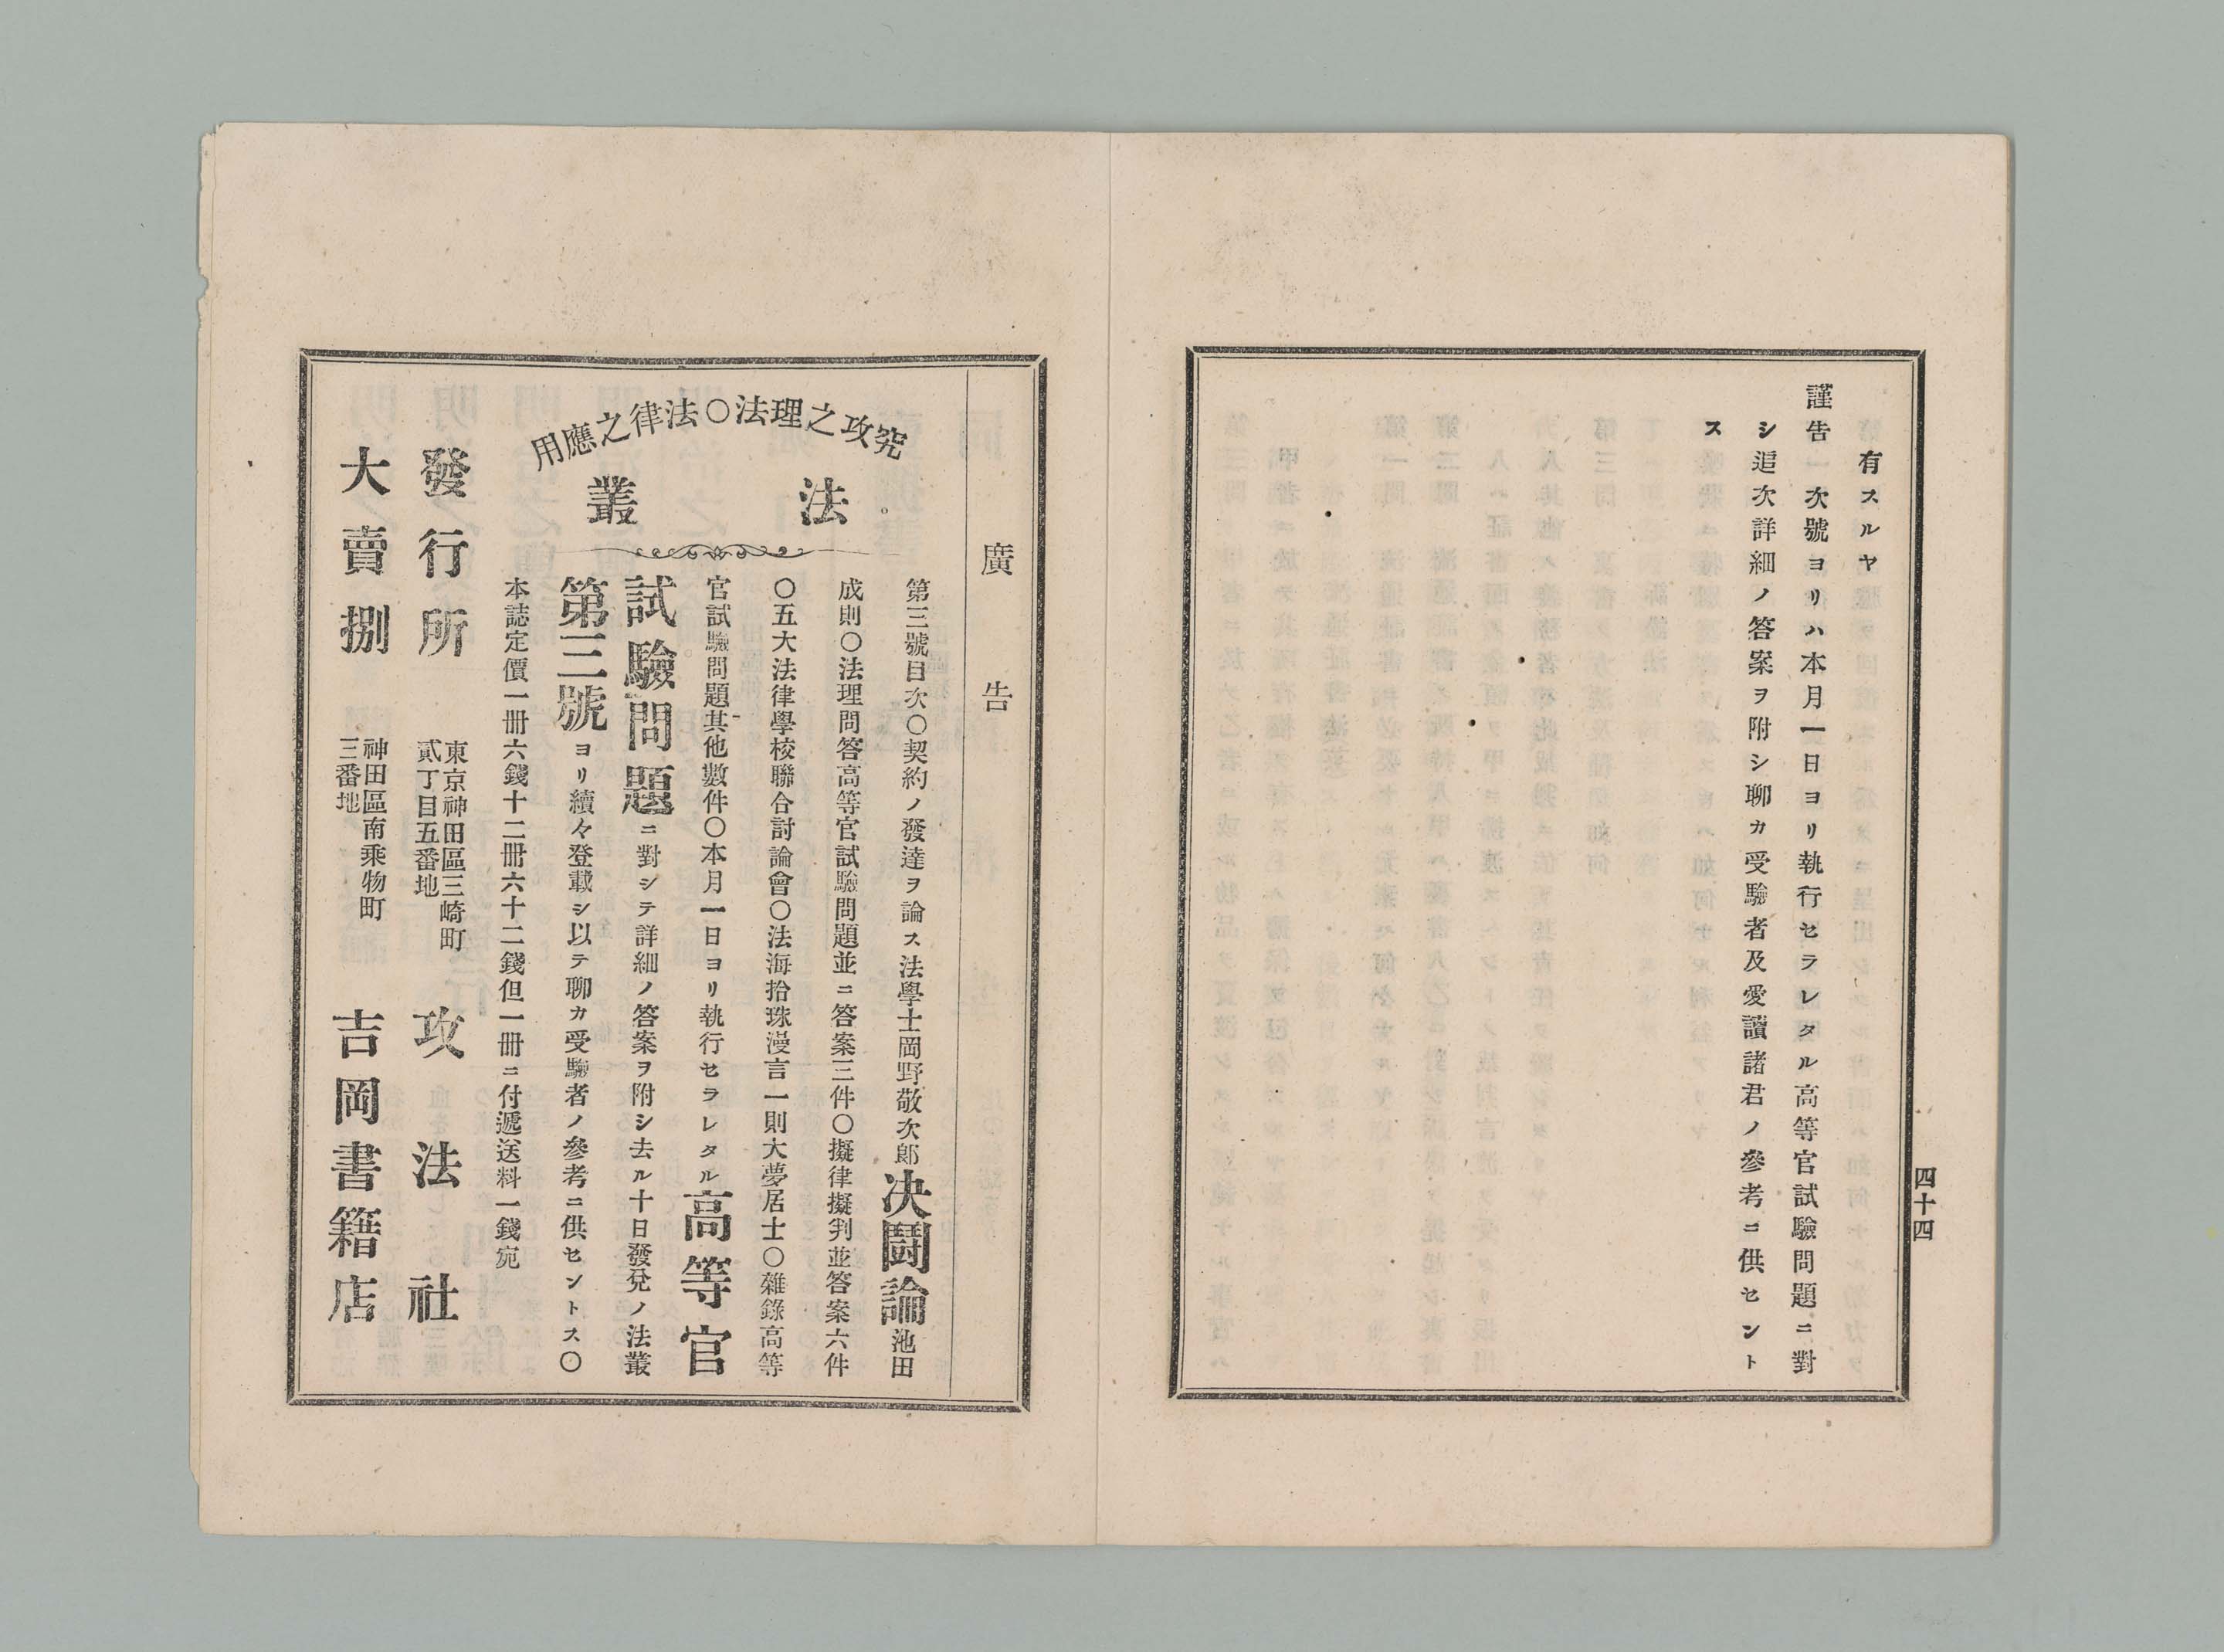 四十四
有スルヤ
謹告 次號ヨリハ本月一日ヨリ執行セラレタル高等官試驗問題ニ對
シ追次詳細ノ答案ヲ附シ聊カ受驗者及愛讀諸君ノ參考ニ供セント
ス
廣告
究攻之理法〇法律之應用
法叢
第三號目次〇契約ノ發達ヲ論ス法學士岡野敬次郎決鬪論池田
成則〇法理問答高等官試驗問題並ニ答案三件〇擬律擬判並答案六件
〇五大法律學校聯合討論會〇法海拾珠漫言一則大夢居士〇雜錄高等
官試驗問題其他數件〇本月一日ヨリ執行セラレタル高等官
試驗問題ニ對シテ詳細ノ答案ヲ附シ去ル十日發兌ノ法叢
第三號ヨリ續々登載シ以テ聊カ受驗者ノ參考ニ供セントス〇
本誌定價一冊六錢十二冊六十二錢但一冊ニ付遞送料一錢宛
發行所 東京神田區三崎町
貳丁目五番地 攻法社
大賣捌 神田區南乘物町
三番地 吉岡書籍店